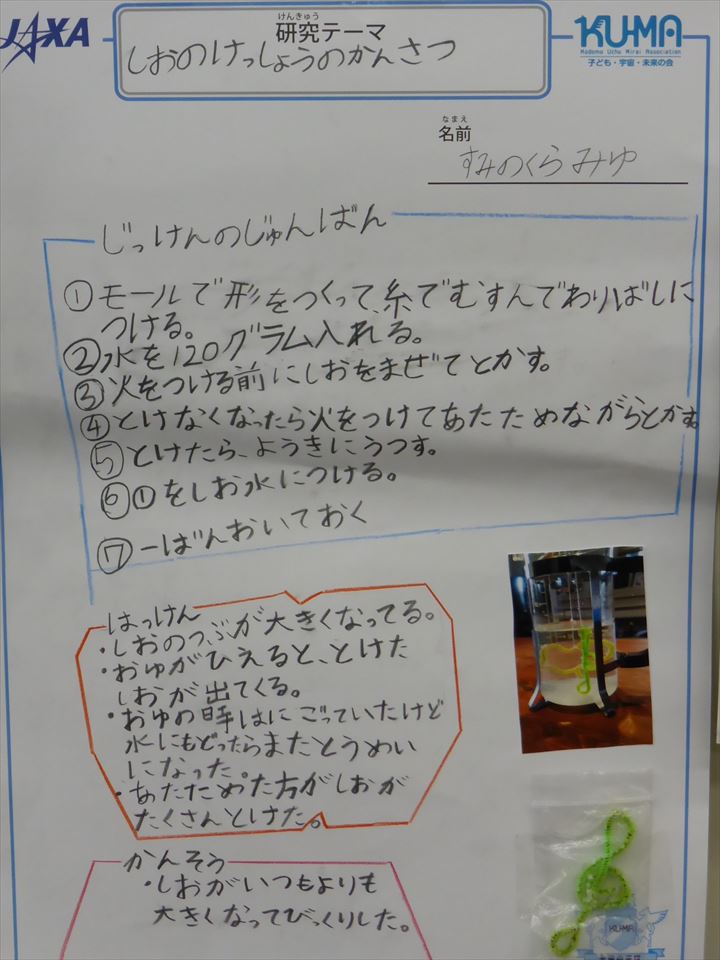 JAXA
けんきゅう
研究テーマ
しおのけっしょうのかんさつ
KU-MA
Kodomo Uchu Mirai Association
子ども・宇宙・未来の会
なまえ
名前
すみのくらみゆ
じっけんのじゅんばん
①モールで形をつくって、糸でむすんでわりばしに
つける。
②水を120グラム入れる。
③火をつける前にしおをまぜてとかす。
④とけなくなったら火をつけてあたためながらとかす。
⑤とけたら、ようきにうつす。
⑥①をしお水につける。
⑦一ばんおいておく
はっけん
・しおのつぶが大きくなってる。
・おゆがひえると、とけた
しおが出てくる。
・おゆの時はにごっていたけど
水にもどったらまたとうめい
になった。
・あたためた方がしおが
たくさんとけた。
かんそう
・しおがいつもよりも
大きくなってびっくりした。
KU-MA